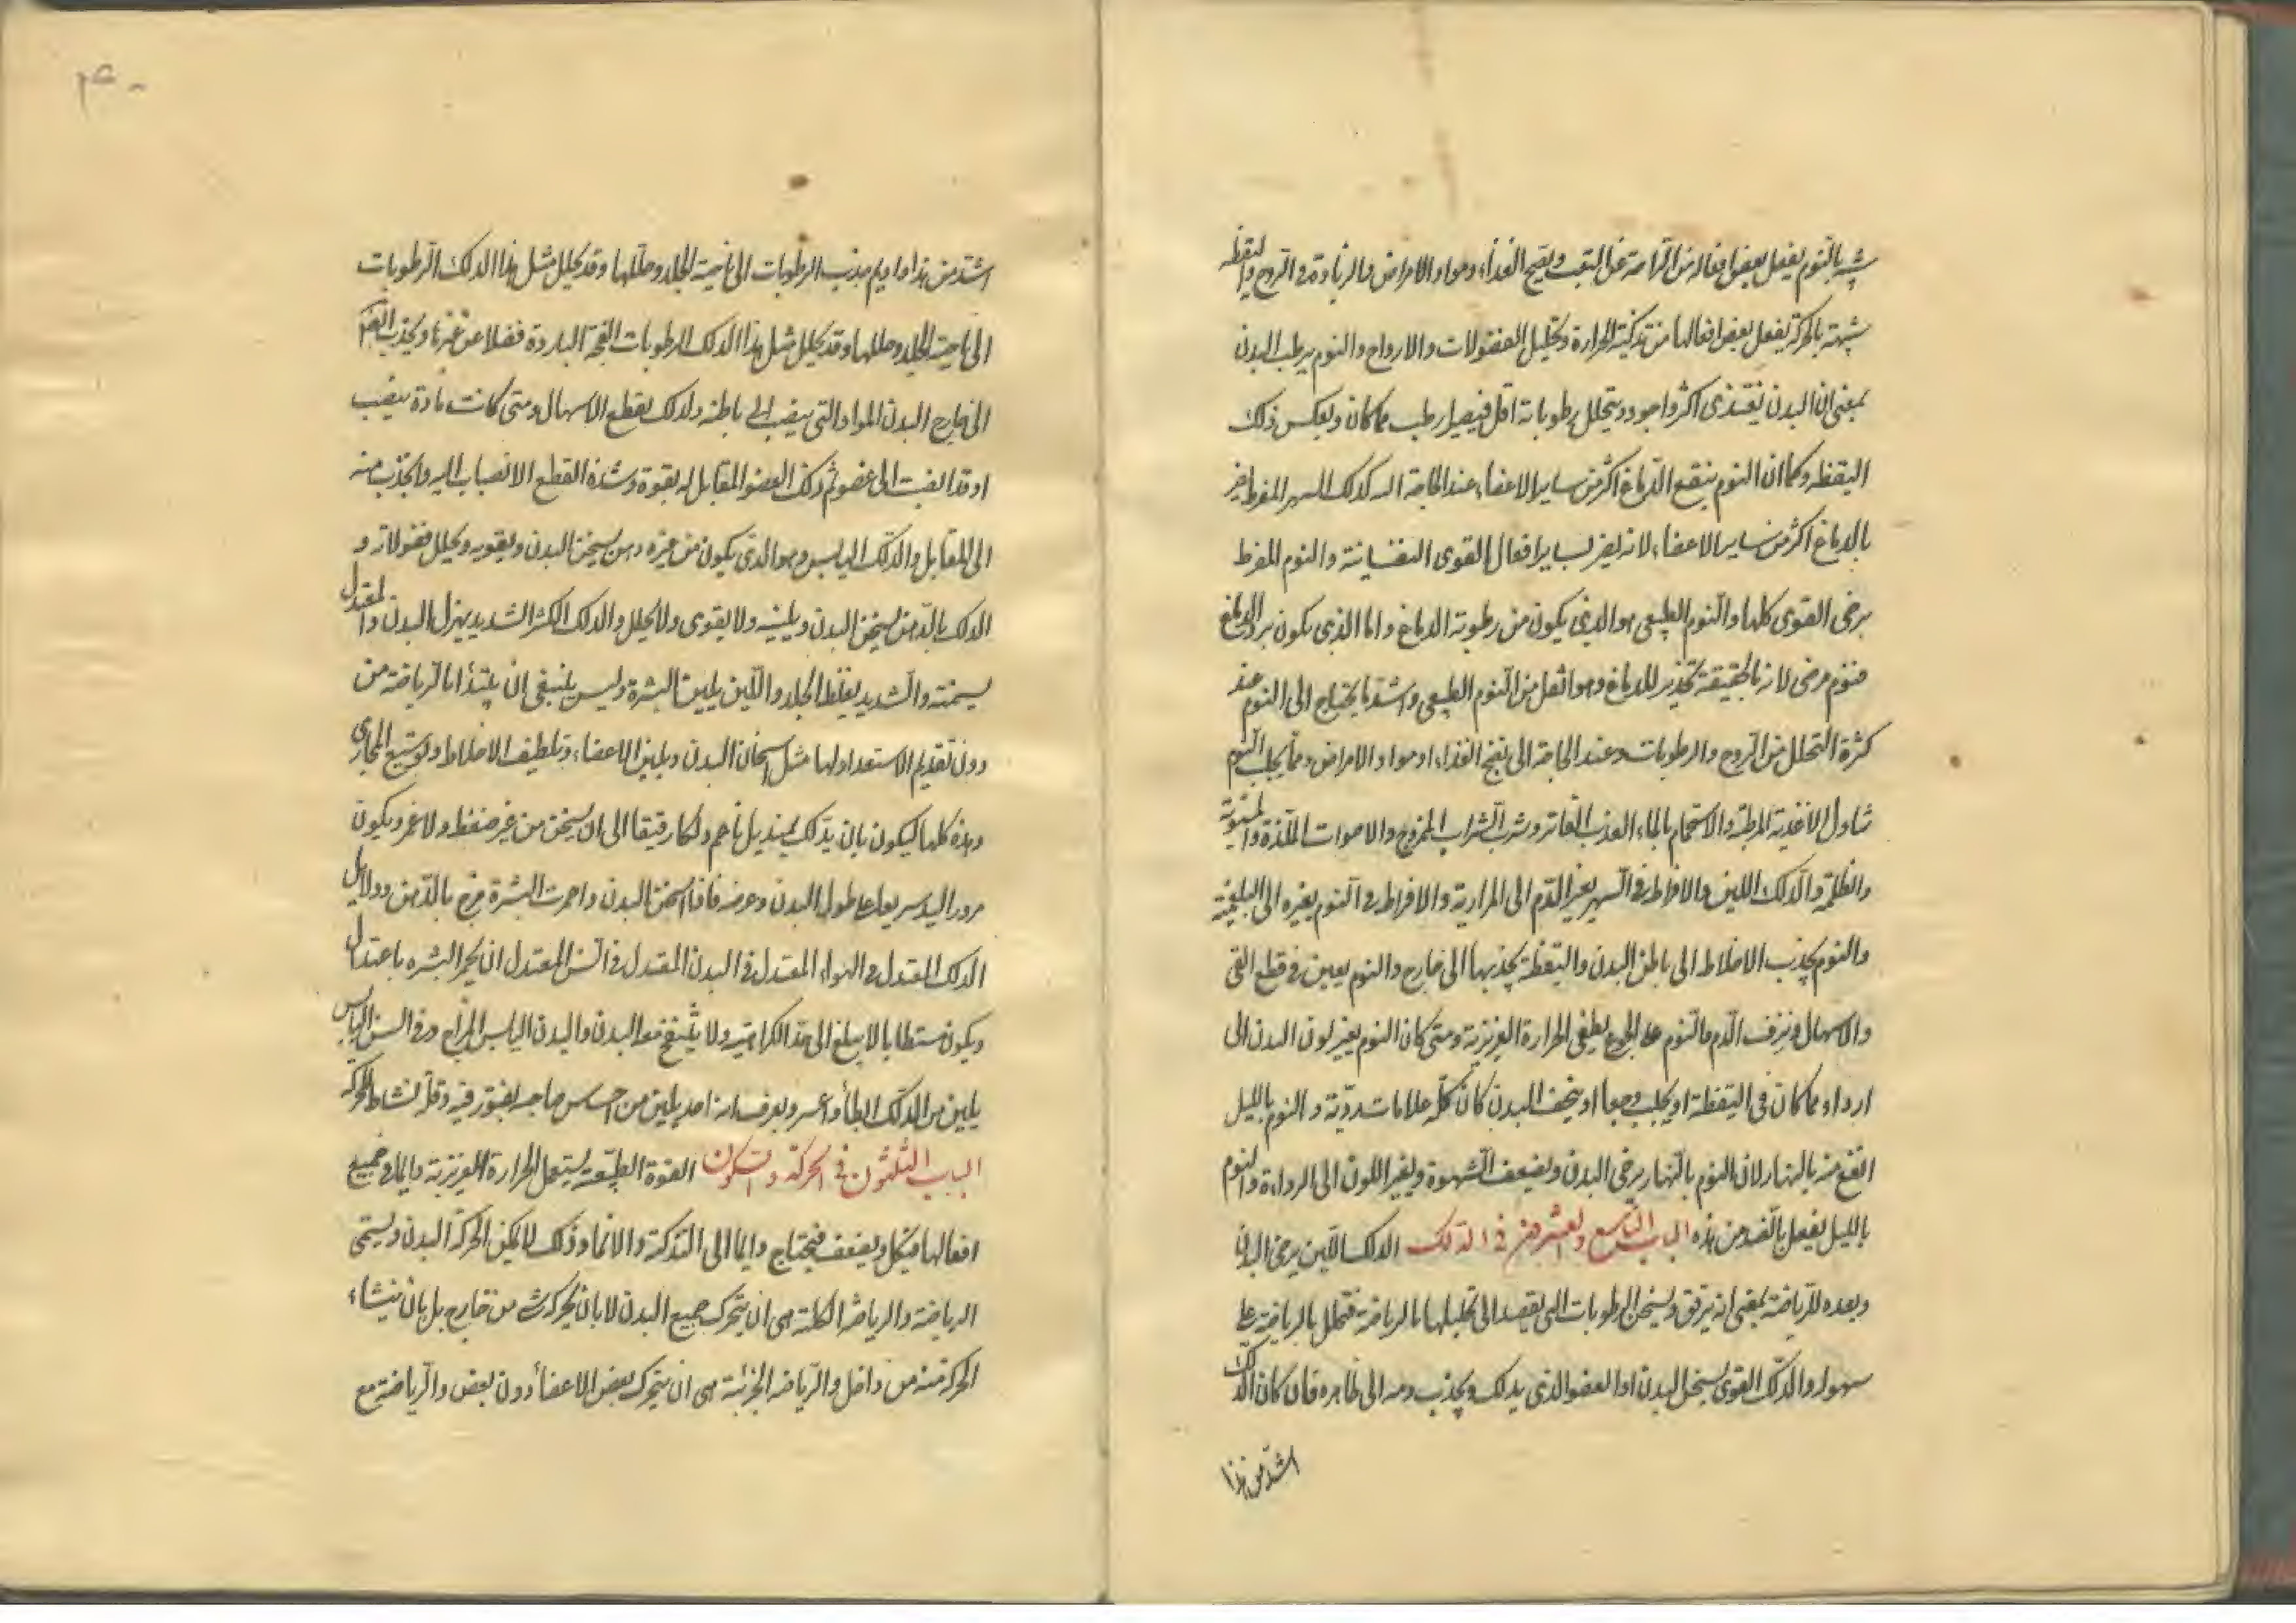 شبيه بالنوم يفعل بعض افعاله من الراحة عن التعب ونضج الغذاء ومواد الامراض والزيادة في الروح واليقظة
شبيهة بالحركة يفعل بعض افعالها من تذكية الحرارة وتحليل الفضولات والارواح والنوم يرطب البدن
بمعنى ان البدن يغتذى اكثر واجود ويتحلل رطوباته اقل فيصير ارطب مما كان وبعكس ذلك
اليقظه وكما ان النوم ينفع الدماغ اكثر من ساير الاعضاء عند الحاجة اليه كذلك السهر المفرط يضر
بالدماغ اكثر من ساير الاعضاء لانه يضر بساير افعال القوى النفسانية والنوم المفرط
يرخى القوى كلها والنوم الطبيعى هو الذى يكون من رطوبة الدماغ واما الذى يكون من برد الدماغ
فنوم مرضى لانه بالحقيقة تخدير للدماغ وهو اثقل من النوم الطبيعى واشد ما يحتاج الى النوم عند
كثرة التحلل من الروح والرطوبات وعند الحاجة الى نضج الغذاء او مواد الامراض ومما يجلب النوم
تناول الاغذية المرطبة والاستحمام بالماء العذب الفاتر وشرب الشراب الممزوج والاصوات اللذيذة
والظلمة والدلك اللين والافراط في السهر يغير الدم الى المرارية والافراط في النوم يغيره الى البلغمية
والنوم يجذب الاخلاط الى باطن البدن واليقظة يجذبها الى خارج والنوم يعين في قطع القى
والاسهال ونزف الدم والنوم على الجوع يطفى الحرارة الغريزية ومتى كان النوم يغير لون البدن الى
ارداء مما كان فى اليقظة او يجلب وجعا او يخف البدن كان كله علامات رديّة والنوم بالليل
انفع منه بالنهار لان النوم بالنهار يرخى البدن ويضعف الشهوة ويغير اللون الى الرداءة والنوم
بالليل يفعل بالضد من هذه الباب التاسع والعشرون في الدلك الدلك اللين يرخى البدن
ويعده للرياضة بمعنى انه يرقق ويسخن الرطوبات التى يقصد الى تحليلها بالرياضة فتحلل بالرياضة على
سهولة والدلك القوى يسخن البدن او العضو الذى يدلك ويجذب دمه الى ظاهره فان كان الدلك
اشد من هذا
اشد من هذا وادوم يجذب الرطوبات الى ناحية الجلد وحللها وقد يحلل مثل هذا الدلك الرطوبات
الى ناحية الجلد وحللها وقد يحلل مثل هذا الدلك الرطوبات الفجة الباردة فضلا عن غيرها ويجذب
الى خارج البدن المواد التى ينصب الى باطنه ولذلك يقطع الاسهال ومتى كانت مادة ينصب
او قد انصبت الى عضو ثم دلك العضو المقابل له بقوة وشدة انقطع الانصباب اليه وانجذب منه
الى المقابل والدلك اليابس وهو الذى يكون من غير دهن يسخن البدن ويقويه ويحلل فضولاته و
الدلك بالدهن يسخن البدن ويلينه ولا يقوى ولا يحلل والدلك الكثير الشديد يهزل البدن والمعتدل
يسمنه والشديد يغلظ الجلد واللين يلين البشرة وليس ينبغى ان يبتدأ بالرياضة من
دون تقديم الاستعداد لها مثل اسخان البدن وتليين الاعضاء وتلطيف الاخلاط وتوسيع المجارى
وهذه كلها يكون بان يدلك بمنديل ناعم دلكا رقيقا الى ان يسخن من غير ضغط ولا غمز ويكون
مرور اليد سريعا على طول البدن وعرضه فاذا سخن البدن واحمرت البشرة مرخ بالدهن ودلايل
الدلك المعتدل في الهواء المعتدل في البدن المعتدل في السن المعتدل ان يحمر البشره باعتدال
ويكون مستطابا لا يبلغ الى حد الكراهية ولا ينتفخ معه البدن والبدن اليابس المزاج وفى السن اليابس
يلين من الدلك ابطأ واعسر ويعرف انه قد يلين من احساس صاحبه بفتور فيه وقلة نشاط للحركة
الباب الثلثون في الحركة والسكون القوة الطبيعية يستعمل الحرارة الغريزية دايما في جميع
افعالها فيكل ويضعف فيحتاج دايما الى التذكية والانماء وذلك لا يمكن الا بحركة البدن ويسمى
الرياضة والرياضة الكلية هى ان يتحرك جميع البدن لا بان يحركه شى من خارج بل بان ينشاء
الحركة منه من داخل والرياضه الجزئية هى ان يتحرك بعض الاعضاء دون بعض والرياضة مع